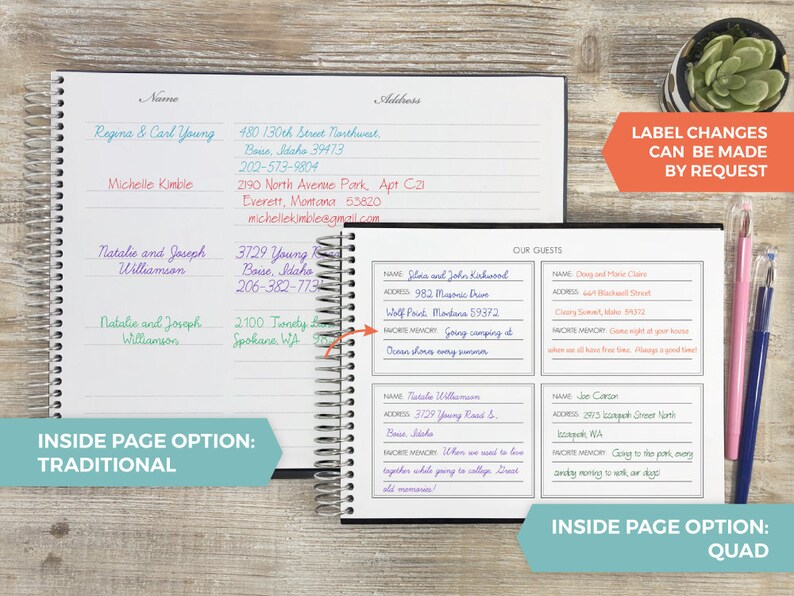 Name Address
Regina & Carl Young 480 130th Street Northwest,
Boise, Idaho 39473
202-573-9804
Michelle Kimble 2190 North Avenue Park, Apt C21
Everett, Montana 53820
michellekimble@gmail.com
Natalie and Joseph 3729 Young
Williamson Boise, Idaho
206-382-773
Natalie and Joseph 2100
Williamson Spokane, WA
LABEL CHANGES
CAN BE MADE
BY REQUEST
OUR GUESTS
NAME: Silvia and John Kirkwood
ADDRESS: 982 Masonic Drive
Wolf Point, Montana 59372
FAVORITE MEMORY: Going camping at
Ocean shores every summer
NAME: Doug and Marie Claire
ADDRESS: 669 Blackwell Street
Cleary Summit, Idaho 59372
FAVORITE MEMORY: Game night at your house
when we all have free time. Always a good time!
NAME: Natalie Williamson
ADDRESS: 3729 Young Road S.,
Boise, Idaho
FAVORITE MEMORY: When we used to love
together while going to college. Great
old memories!
NAME: Joe Carson
ADDRESS: 2973 Issaquah Street North
Issaquah, WA
FAVORITE MEMORY: Going to the park every
sunday morning to walk our dogs!
INSIDE PAGE OPTION:
TRADITIONAL
INSIDE PAGE OPTION:
QUAD